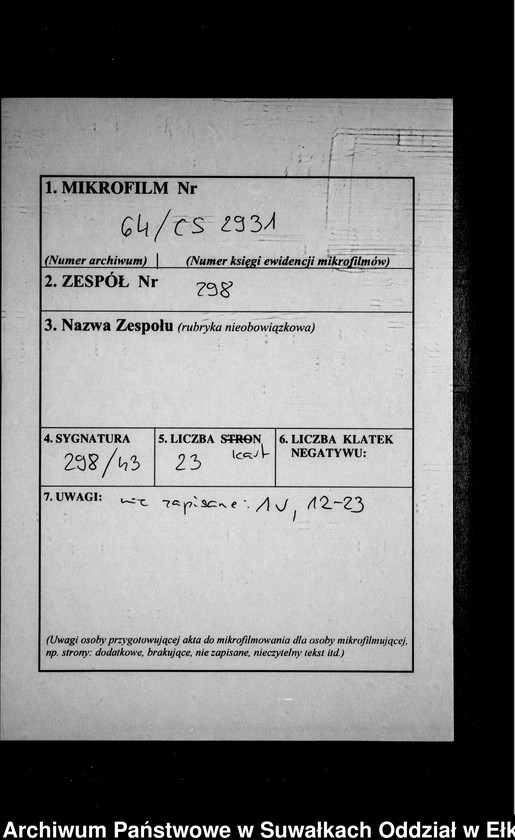 1. MIKROFILM Nr
64/CS 2931
(Numer archiwum) | (Numer księgi ewidencji mikrofilmów)
2. ZESPÓŁ Nr 298
3. Nazwa Zespołu (rubryka nieobowiązkowa)
4. SYGNATURA 5. LICZBA STRON 6. LICZBA KLATEK
kart NEGATYWU:
298/43 23
7. UWAGI: nie zapisane: 1v, 12-23
(Uwagi osoby przygotowującej akta do mikrofilmowania dla osoby mikrofilmującej,
np. strony: dodatkowe, brakujące, nie zapisane, nieczytelny tekst itd.)
Archiwum Państwowe w Suwałkach Oddział w Ełk